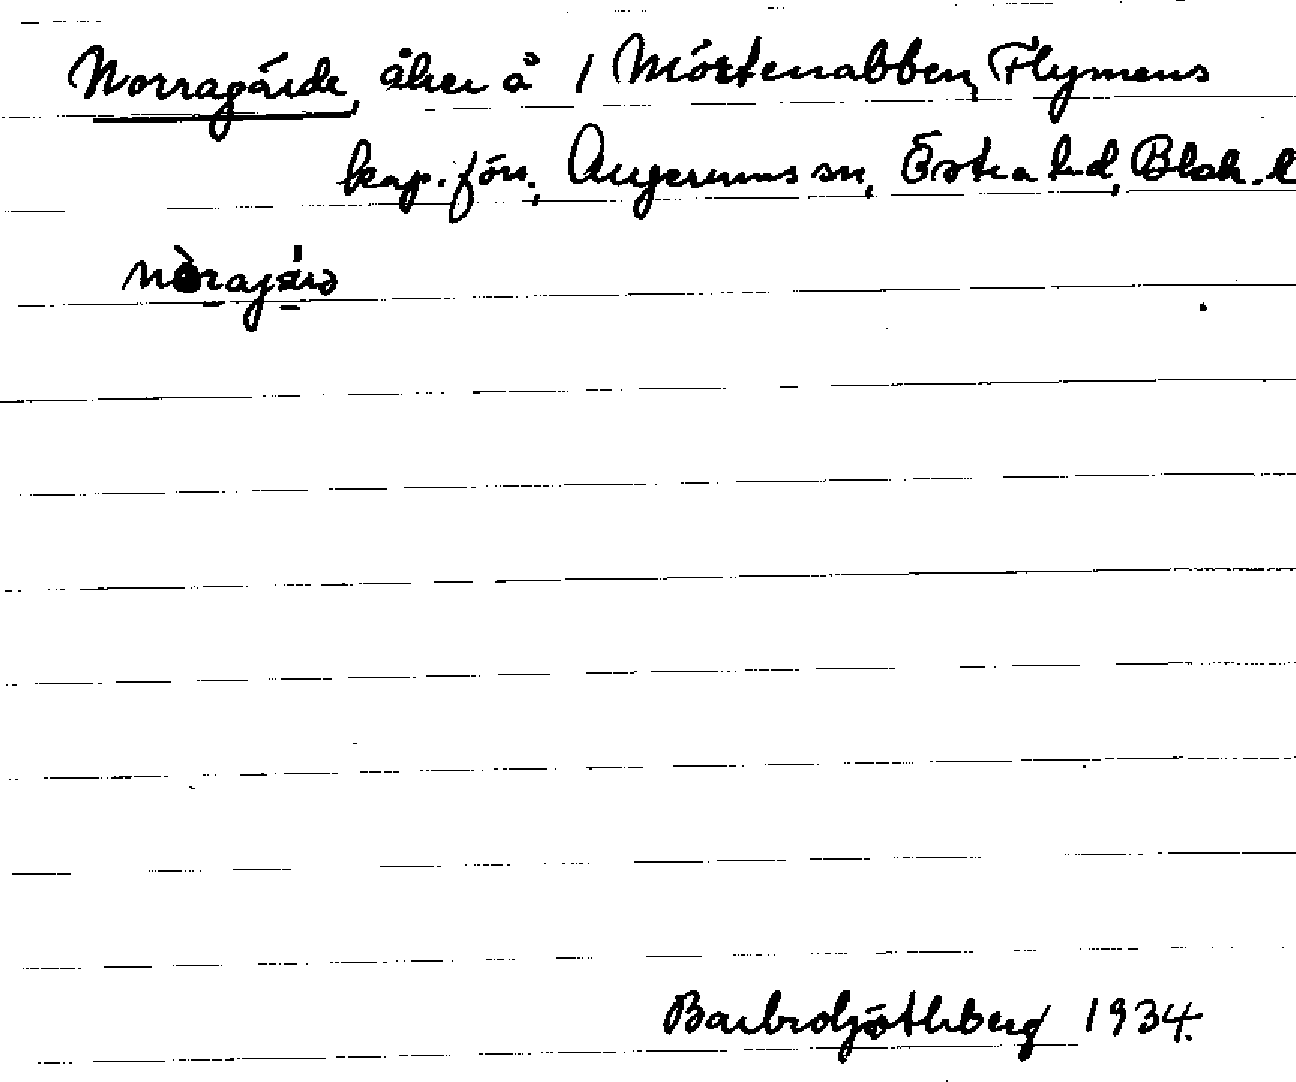 Norragärde, åker å 1 Mörtenabben, Flymens
kap. förs., Augerums sn, Östra hd, Blek. l
Barbro Göthberg 1934.